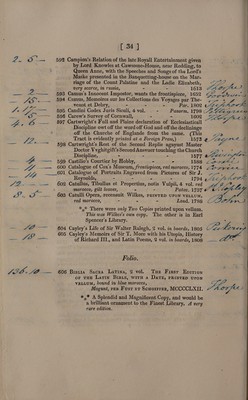 [ 31 ]
2 - 5 -
592 Campion's Relation of the late Royall Entertainment given
by Lord Knowles at Cawsome-House, neer Redding, to
Queen Anne, with the Speeches and Songs of the Lord's
Maske presented in the Banquetting-house on the Mar-
riage of the Count Palatine and the Ladie Elizabeth,
very scarce, in russia, - - 1613 Thorpe
593 Camus's Innocent Impostor, wants the frontispiece, 1652
594 Camus, Memoires sur les Collections du Voyage par The-
venot et Debry, - - Par. 1802
15 - 595 Candini Codex Juris Siculi, 4 vol. Panorm. 1796
596 Carew's Survey of Cornwall, - - 1602
597 Cartwright's Full and plaine declaration of Ecclesiasticall
Discipline owt off the word off God and off the declininge
off the Churche of Englande from the same. (This
Tract is evidently printed at a Foreign Press,) 1574
12 - 598 Cartwright's Rest of the Second Replie agaynst Master
Doctor Vuhgiftes Second Answer touching the Church
Discipline, - - 1577
599 Castilio's Courtier by Hobby, - - 1588
600 Catalogue of Cox's Museum, frontispiece, red morocco, 1774
14 - 601 Catalogue of Portraits Engraved from Pictures of Sir J.
Reynolds, - - 1794
12 - 602 Catullus, Tibullus et Propertius, notis Vulpii, 4 vol. red
morocco, gilt leaves, - Patav. 1737
8 - 5 - 603 Catulli Opera, recensuit Wilkes, PRINTED UPON VELLUM,
red morocco, - - Lond. 1788
*** There were only Two Copies printed upon vellum.
This was Wilkes's own copy. The other is in Earl
Spencer's Library.
10 - 604 Cayley's Life of Sir Walter Raleigh, 2 vol. in boards, 1805
18 - 605 Cayley's Memoirs of Sir T. More with his Utopia, History
of Richard III., and Latin Poems, 2 vol. in boards, 1808
Folio.
136.10 - 606 BIBLIA SACRA LATINA, 2 vol. THE FIRST EDITION
OF THE LATIN BIBLE, WITH A DATE, PRINTED UPON
VELLUM, bound in blue morocco,
Mogunt, PER FUST ET SCHOIFFER, MCCCCLXII. Thorpe
*** A Splendid and Magnificent Copy, and would be
a brilliant ornament to the Finest Library. A very
rare edition.